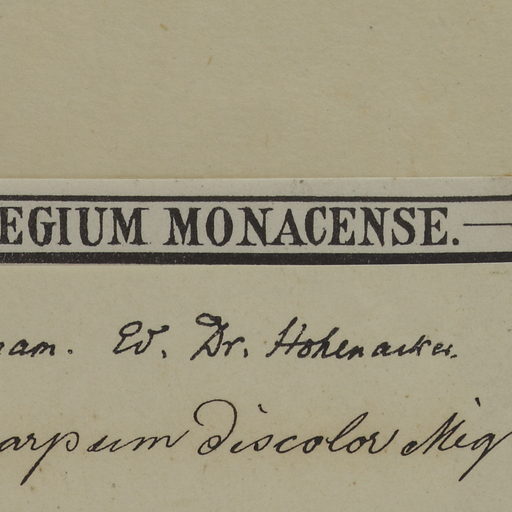 EGIUM MONACENSE.
nam. Ed. Dr. Hohenacker.
arpum discolor Miq